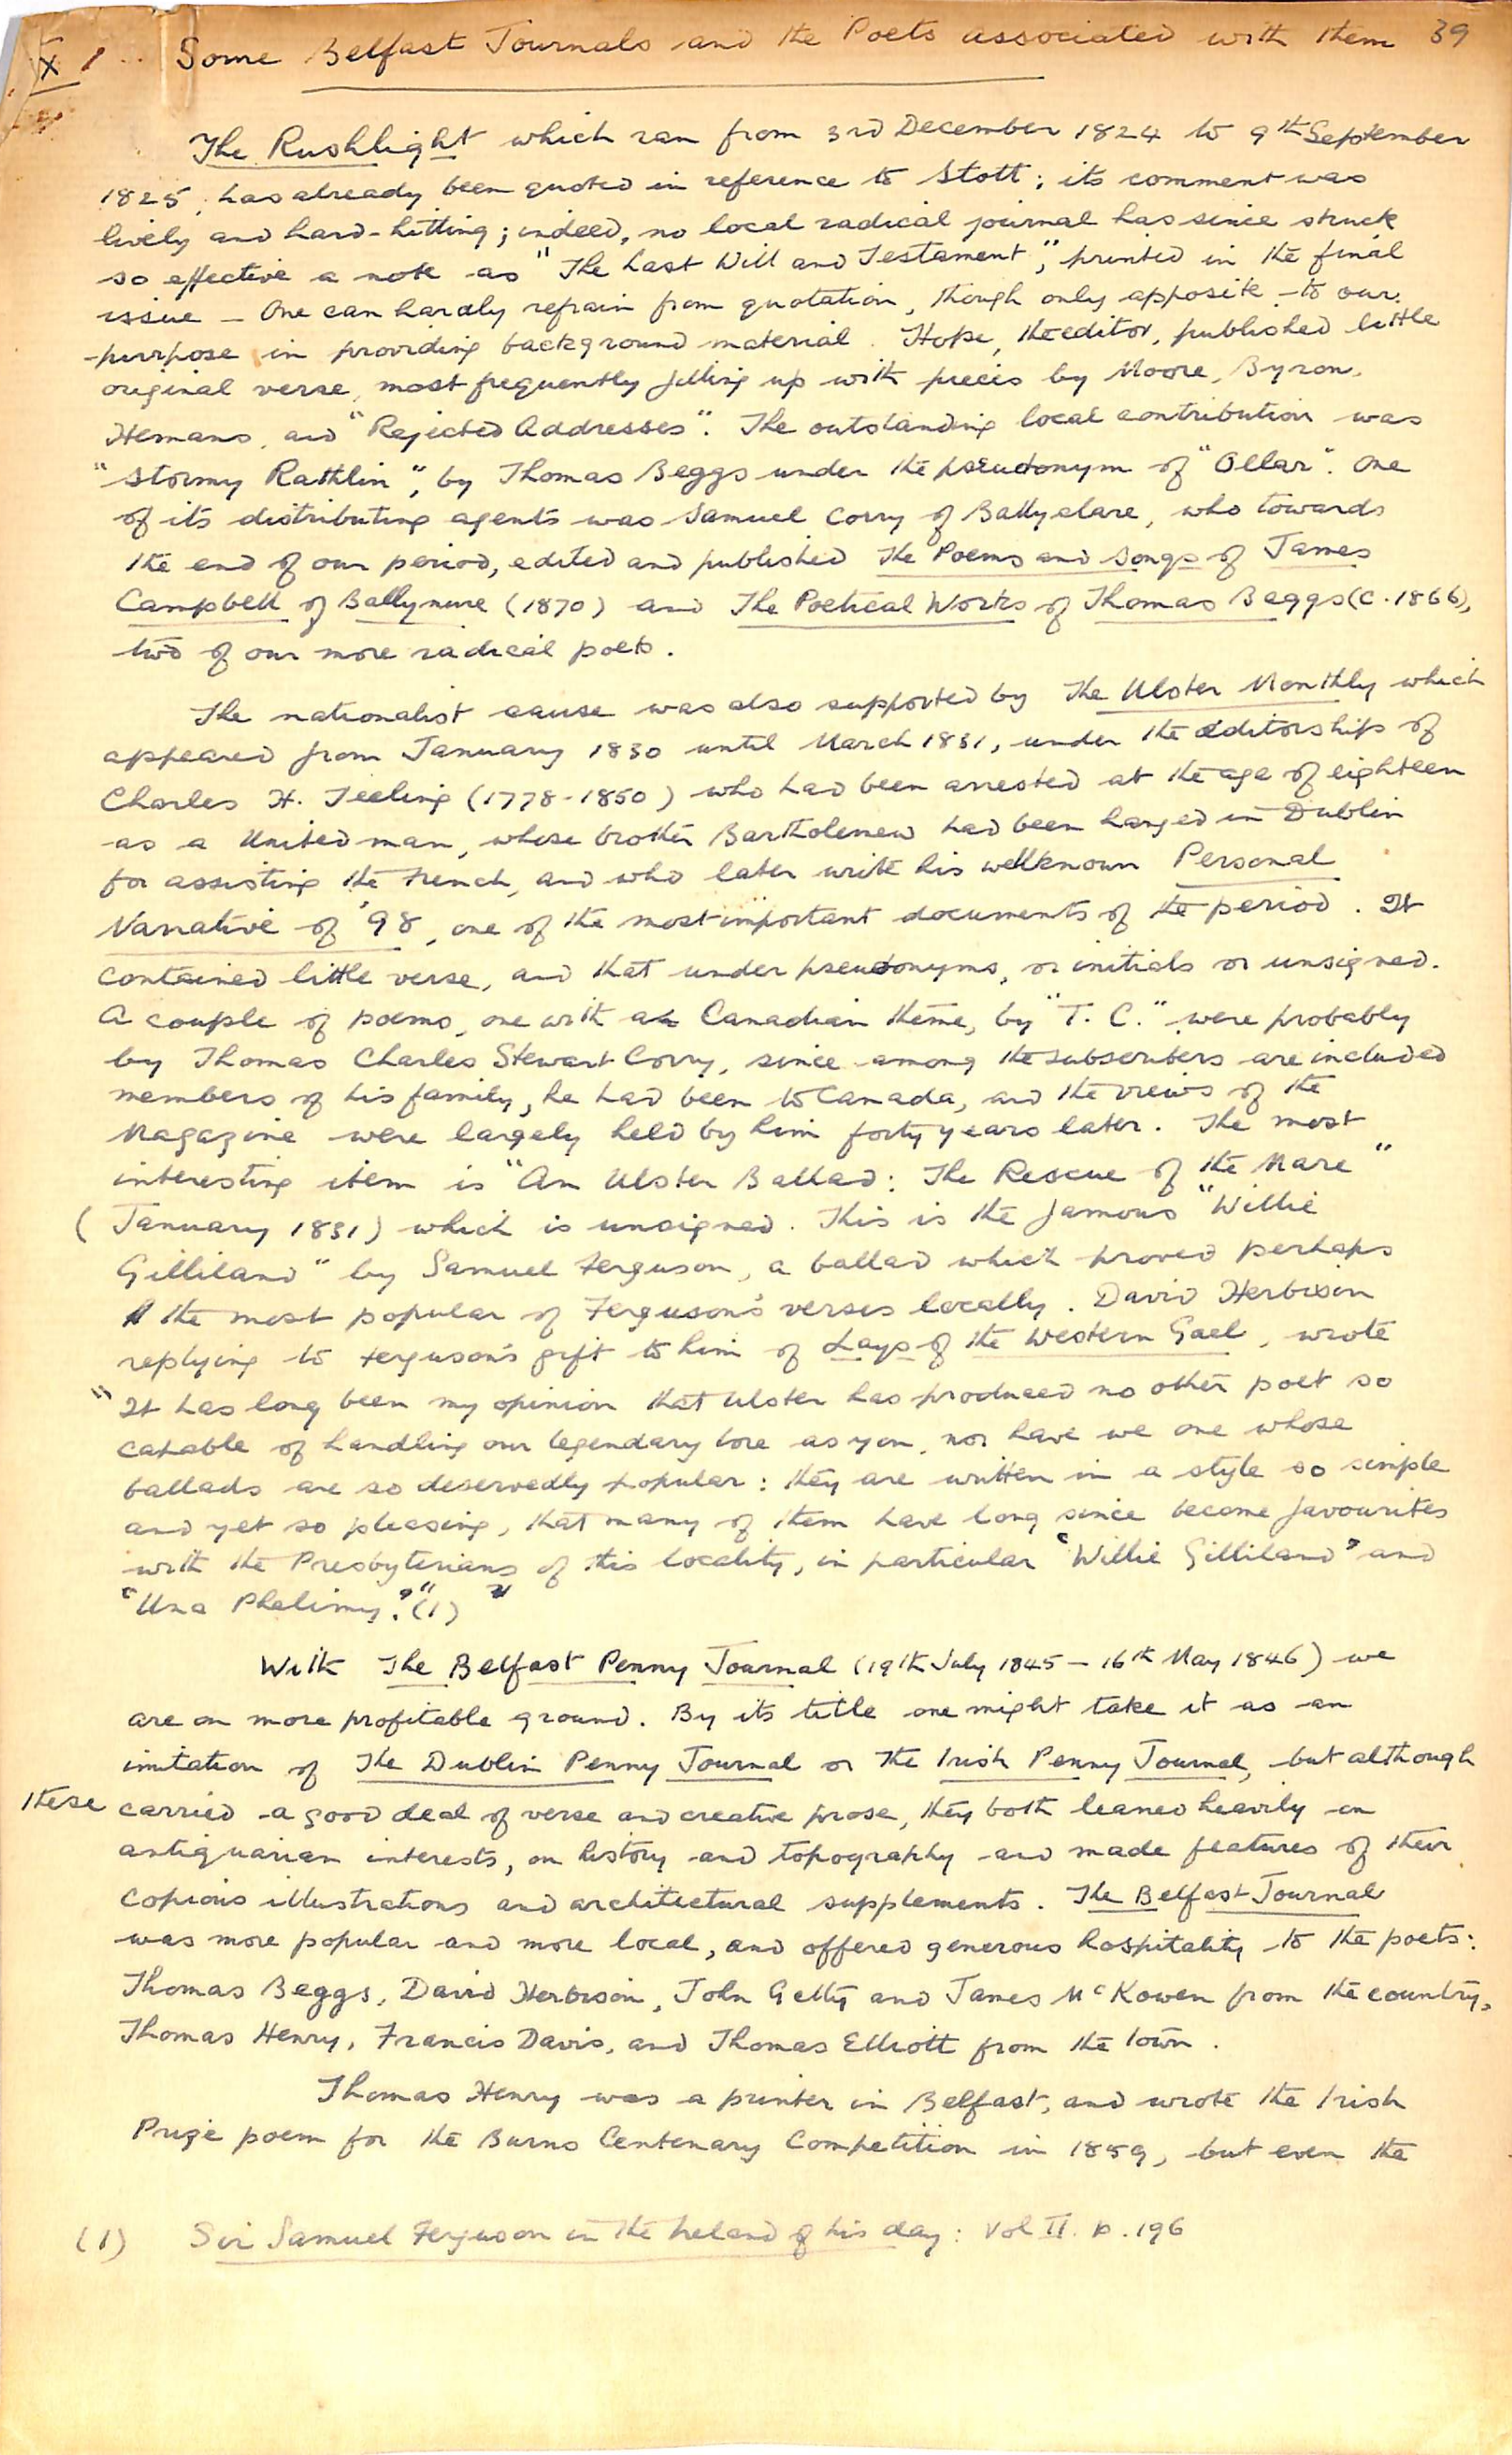 X 1 Some Belfast Journals and the Poets associated with them 39
The Rushlight which ran from 3rd December 1824 to 9th September
1825, has already been quoted in reference to Stott; its comment was
lively and hard-hitting; indeed, no local radical journal has since struck
so effective a note as "The Last Will and Testament", printed in the final
issue - One can hardly refrain from quotation, though only apposite to our
purpose in providing background material. Hope, the editor, published little
original verse, most frequently filling up with pieces by Moore, Byron,
Hemans, and "Rejected Addresses". The outstanding local contribution was
"Stormy Rathlin", by Thomas Beggs under the pseudonym of "Ollar". One
of its distributing agents was Samuel Corry of Ballyclare, who towards
the end of our period, edited and published The Poems and Songs of James
Campbell of Ballynure (1870) and The Poetical Works of Thomas Beggs (c. 1866),
two of our more radical poets.
The nationalist cause was also supported by The Ulster Monthly which
appeared from January 1830 until March 1831, under the editorship of
Charles H. Teeling (1778-1850) who had been arrested at the age of eighteen
as a United man, whose brother Bartholemew had been hanged in Dublin
for assisting the French, and who later write his wellknown Personal
Narrative of '98, one of the most important documents of the period. It
contained little verse, and that under pseudonyms, or initials or unsigned.
A couple of poems, one with a Canadian theme, by "T. C." were probably
by Thomas Charles Stewart Corry, since among the subscribers are included
members of his family, he had been to Canada, and the views of the
Magazine were largely held by him forty years later. The most
interesting item is "An Ulster Ballad: The Rescue of the Mare"
(January 1831) which is unsigned. This is the famous "Willie
Gilliland" by Samuel Ferguson, a ballad which proved perhaps
the most popular of Ferguson's verses locally. David Herbison
replying to Ferguson's gift to him of Lays of the Western Gael, wrote
"It has long been my opinion that Ulster has produced no other poet so
capable of handling our legendary lore as you, nor have we one whose
ballads are so deservedly popular: they are written in a style so simple
and yet so pleasing, that many of them have long since become favourites
with the Presbyterians of this locality, in particular 'Willie Gilliland' and
'Una Phelimy'." (1)
With The Belfast Penny Journal (19th July 1845 - 16th May 1846) we
are on more profitable ground. By its title one might take it as an
imitation of The Dublin Penny Journal or The Irish Penny Journal, but although
these carried a good deal of verse and creative prose, they both leaned heavily on
antiquarian interests, on history and topography and made features of their
copious illustrations and architectural supplements. The Belfast Journal
was more popular and more local, and offered generous hospitality to the poets:
Thomas Beggs, David Herbison, John Getty and James McKowen from the country,
Thomas Henry, Francis Davis, and Thomas Elliott from the town.
Thomas Henry was a printer in Belfast, and wrote the Irish
Prize poem for the Burns Centenary Competition in 1859, but even the
(1) Sir Samuel Ferguson in the Ireland of his day: Vol II. p. 196